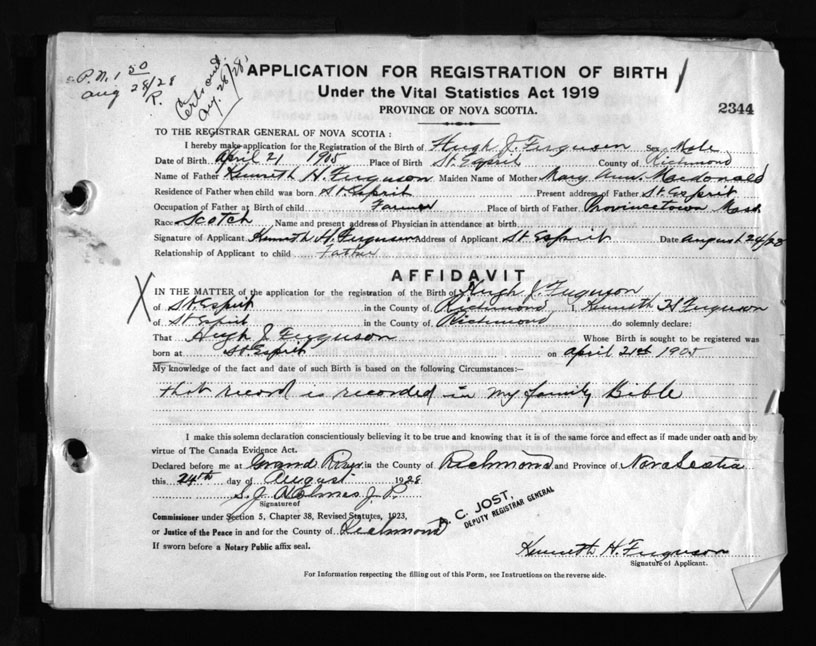 P.N. 1 50
Aug 28/28
R.
Cert sent
Aug. 28/28.
APPLICATION FOR REGISTRATION OF BIRTH
Under the Vital Statistics Act 1919
PROVINCE OF NOVA SCOTIA.
2344
TO THE REGISTRAR GENERAL OF NOVA SCOTIA :
I hereby make application for the Registration of the Birth of Hugh J. Ferguson Sex Male
Date of Birth April 21 1905 Place of Birth St. Esprit County of Richmond
Name of Father Kenneth H. Ferguson Maiden Name of Mother Mary Ann Macdonald
Residence of Father when child was born St Esprit Present address of Father St Esprit
Occupation of Father at Birth of child Farmer Place of birth of Father Provincetown Mass
Race Scotch Name and present address of Physician in attendance at birth
Signature of Applicant Kenneth H. Ferguson Address of Applicant St Esprit Date August 24/28
Relationship of Applicant to child Father
AFFIDAVIT
IN THE MATTER of the application for the registration of the Birth of Hugh J. Ferguson
of St. Esprit in the County of Richmond, I, Kenneth H Ferguson
of St Esprit in the County of Richmond do solemnly declare:
That Hugh J Ferguson Whose Birth is sought to be registered was
born at St. Esprit on April 21st 1905
My knowledge of the fact and date of such Birth is based on the following Circumstances:—
that record is recorded in my family Bible
I make this solemn declaration conscientiously believing it to be true and knowing that it is of the same force and effect as if made under oath and by
virtue of The Canada Evidence Act.
Declared before me at Grand River in the County of Richmond and Province of Nova Scotia
this 24th day of August 1928
S. J. Holmes J. P.
Signature of
Commissioner under Section 5, Chapter 38, Revised Statutes, 1923,
or Justice of the Peace in and for the County of Richmond
If sworn before a Notary Public affix seal.
C. JOST,
DEPUTY REGISTRAR GENERAL
Kenneth H. Ferguson
Signature of Applicant.
For Information respecting the filling out of this Form, see Instructions on the reverse side.